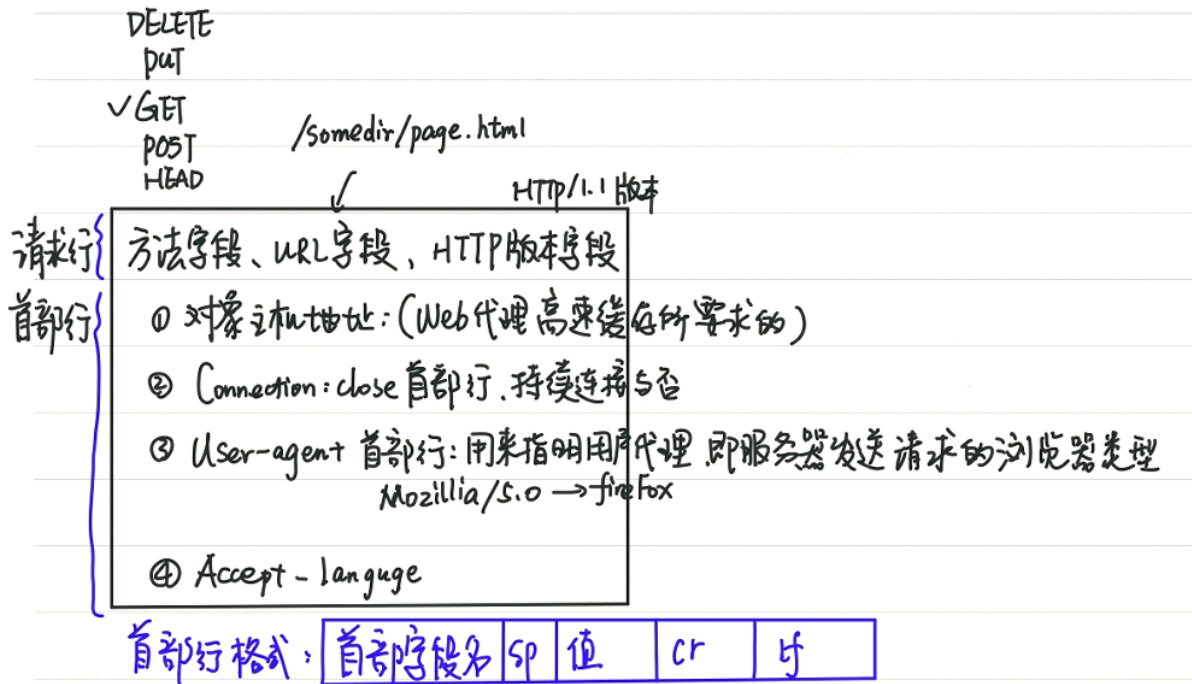 DELETE
PUT
✓GET
POST
HEAD
/somedir/page.html
HTTP/1.1 版本
请求行
方法字段、URL字段、HTTP版本字段
首部行
① 对象主机地址:(Web代理高速缓存所要求的)
② Connection:close首部行.持续连接与否
③ User-agent 首部行:用来指明用户代理.即服务器发送请求的浏览器类型
Mozillia/5.0 →fireFox
④ Accept-languge
首部行格式: 首部字段名 sp 值 cr lf